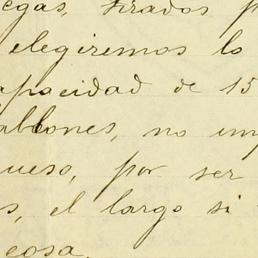 egas, tirados p
elegiremos lo
apacidad de 15
ablones, no imp
ueso, por ser
s, el largo si
cosa.